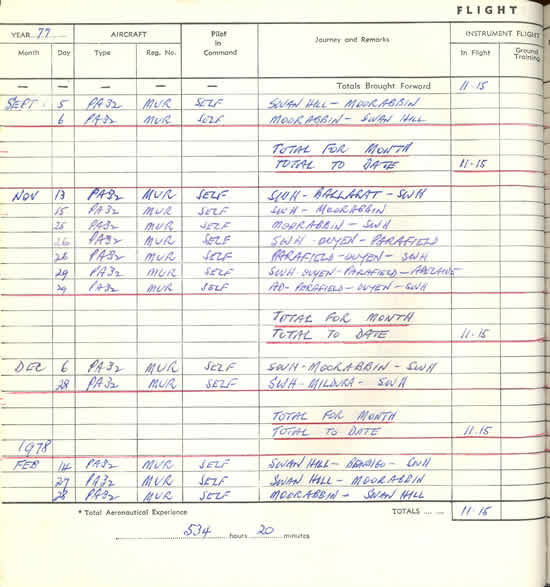 FLIGHT
YEAR 77 AIRCRAFT Pilot in Command Journey and Remarks INSTRUMENT FLIGHT
Month Day Type Reg. No. In Flight Ground Training
— — — — — Totals Brought Forward 11·15
SEPT 5 PA32 MUR SELF SWAN HILL - MOORABBIN
6 PA32 MUR SELF MOORABBIN - SWAN HILL
TOTAL FOR MONTH
TOTAL TO DATE 11·15
NOV 13 PA32 MUR SELF SWH - BALLARAT - SWH
15 PA32 MUR SELF SWH - MOORABBIN
25 PA32 MUR SELF MOORABBIN - SWH
26 PA32 MUR SELF SWH - OUYEN - PARAFIELD
26 PA32 MUR SELF PARAFIELD - OUYEN - SWH
29 PA32 MUR SELF SWH - OUYEN - PARAFIELD - ADELAIDE
29 PA32 MUR SELF AD - PARAFIELD - OUYEN - SWH
TOTAL FOR MONTH
TOTAL TO DATE 11·15
DEC 6 PA32 MUR SELF SWH - MOORABBIN - SWH
28 PA32 MUR SELF SWH - MILDURA - SWH
TOTAL FOR MONTH
TOTAL TO DATE 11·15
1978
FEB 14 PA32 MUR SELF SWAN HILL - BENDIGO - SWH
27 PA32 MUR SELF SWAN HILL - MOORABBIN
28 PA32 MUR SELF MOORABBIN - SWAN HILL
* Total Aeronautical Experience TOTALS ...... 11·15
534 hours 20 minutes